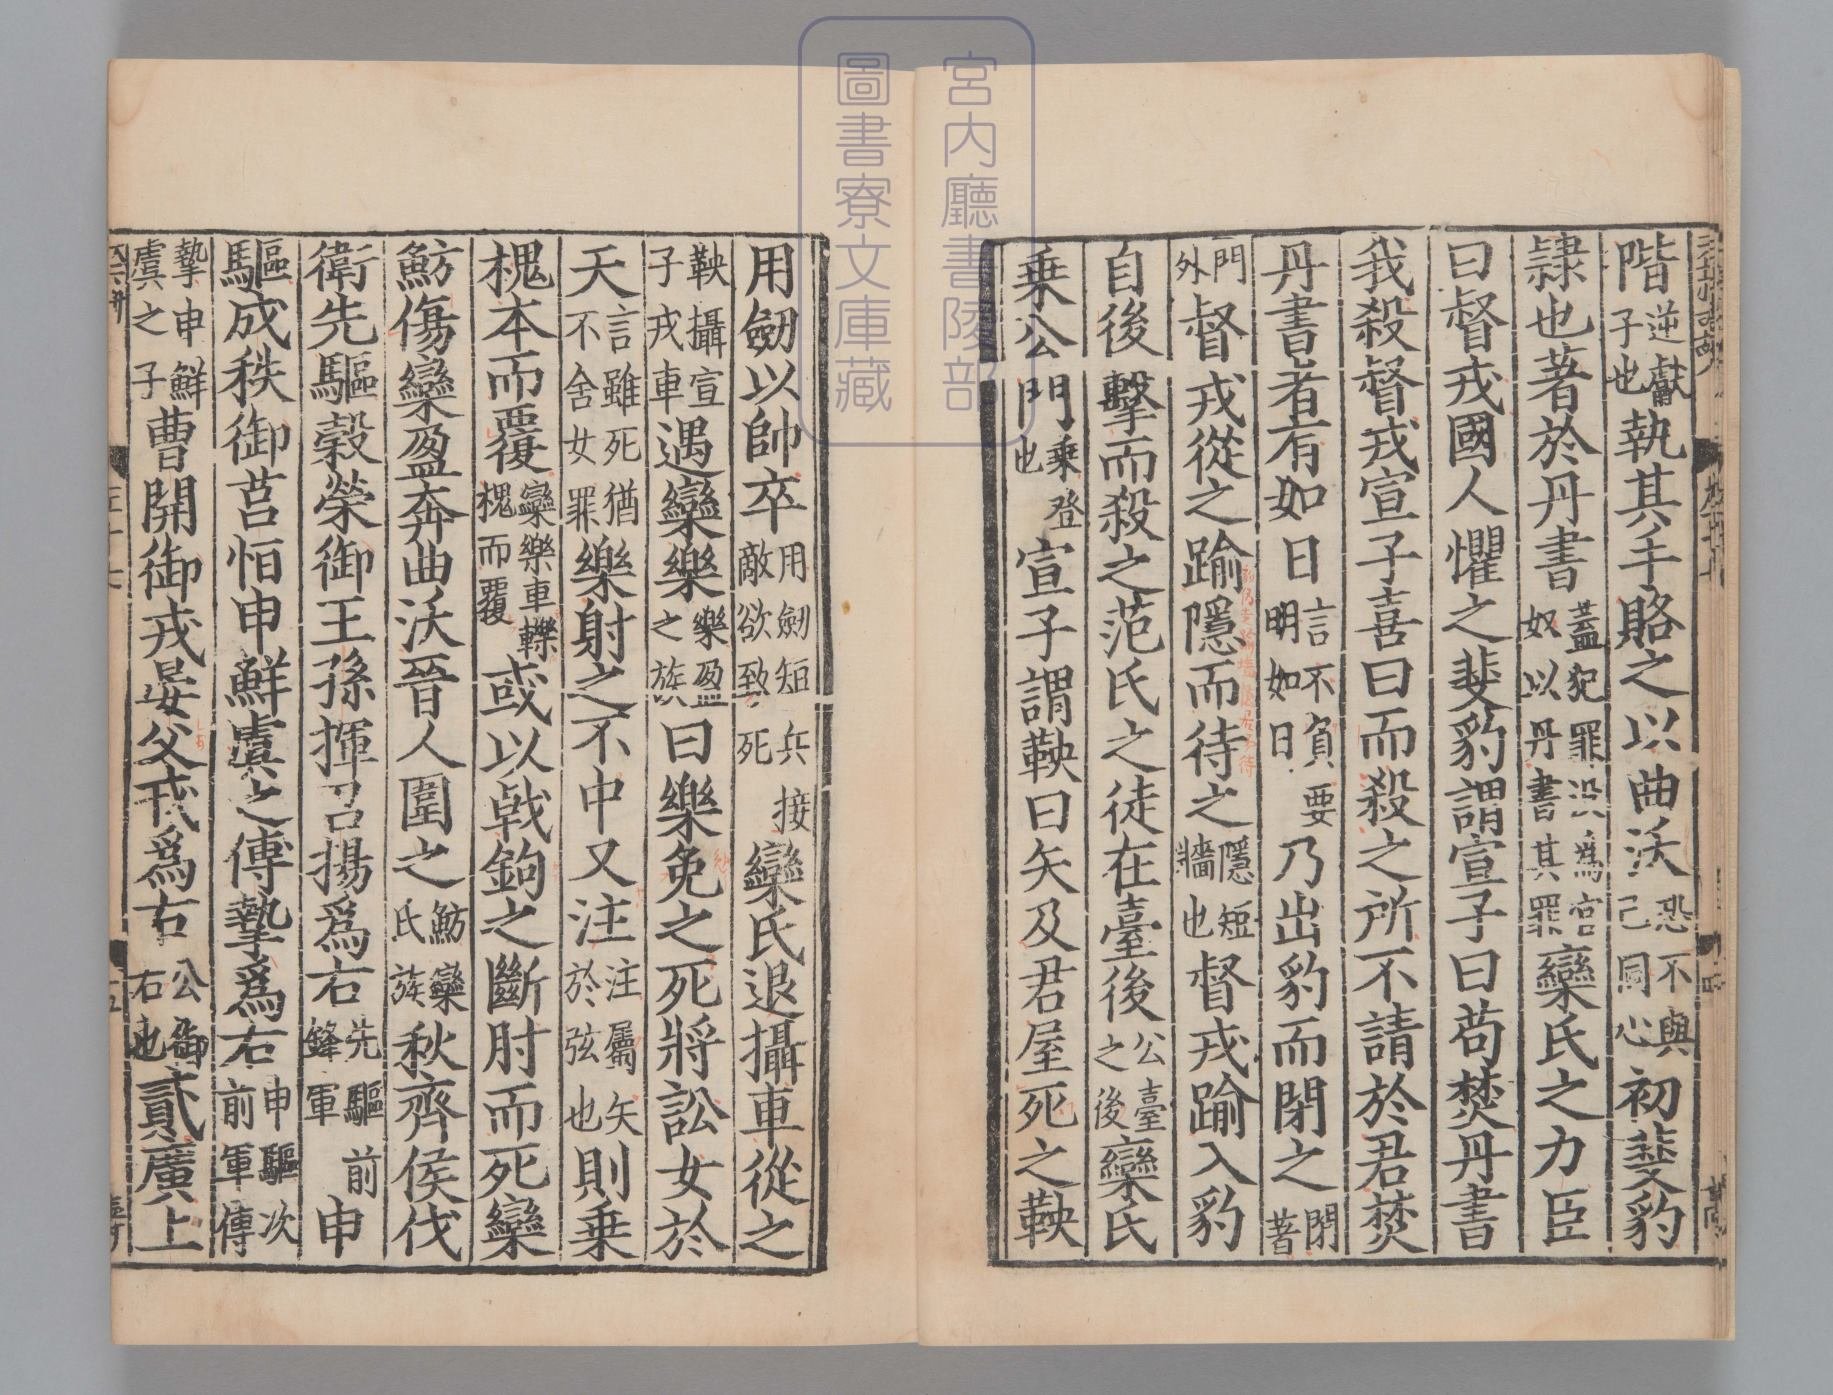 階逆獻子也執其手賂之以曲沃恐不與己同心初斐豹
隸也著於丹書蓋犯罪没爲官奴以丹書其罪欒氏之力臣
曰督戎國人懼之斐豹謂宣子曰苟焚丹書
我殺督戎宣子喜曰而殺之所不請於君焚
丹書者有如日言不負要明如日乃出豹而閉之閉著
門外督戎從之踰隱而待之隱短牆也督戎踰入豹
自後擊而殺之范氏之徒在臺後公臺之後欒氏
乗公門乗登也宣子謂鞅曰矢及君屋死之鞅
用劒以帥卒用劒短兵接敵欲致死欒氏退攝車從之
鞅攝宣子戎車遇欒樂樂盈之族曰樂免之死將訟女於
天言雖死猶不舍女罪樂射之不中又注注屬矢於弦也則乗
槐本而覆欒樂車轢槐而覆或以戟鉤之斷肘而死欒
魴傷欒盈奔曲沃晉人圍之魴欒氏族秋齊侯伐
衛先驅穀榮御王孫揮召揚爲右先驅前鋒軍申
驅成秩御莒恒申鮮虞之傅摯爲右申驅次前軍傅
摯申鮮虞之子曹開御戎晏父戎爲右公御右也貳廣上
宮内廳書陵部
圖書寮文庫藏